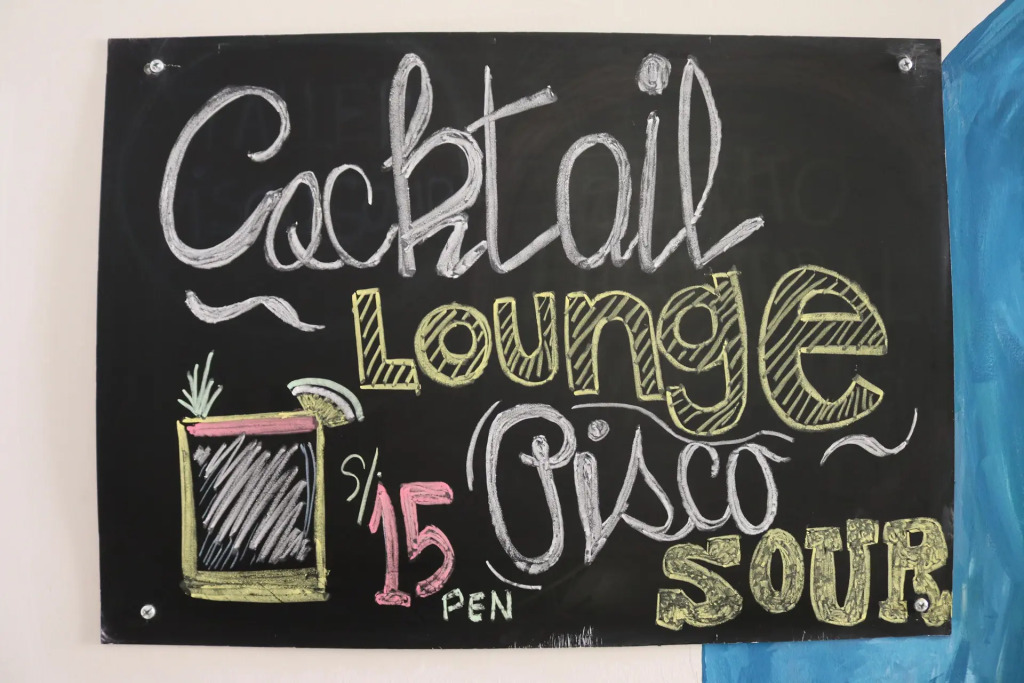 Cocktail
Lounge
Pisco
SOUR
S/15
PEN